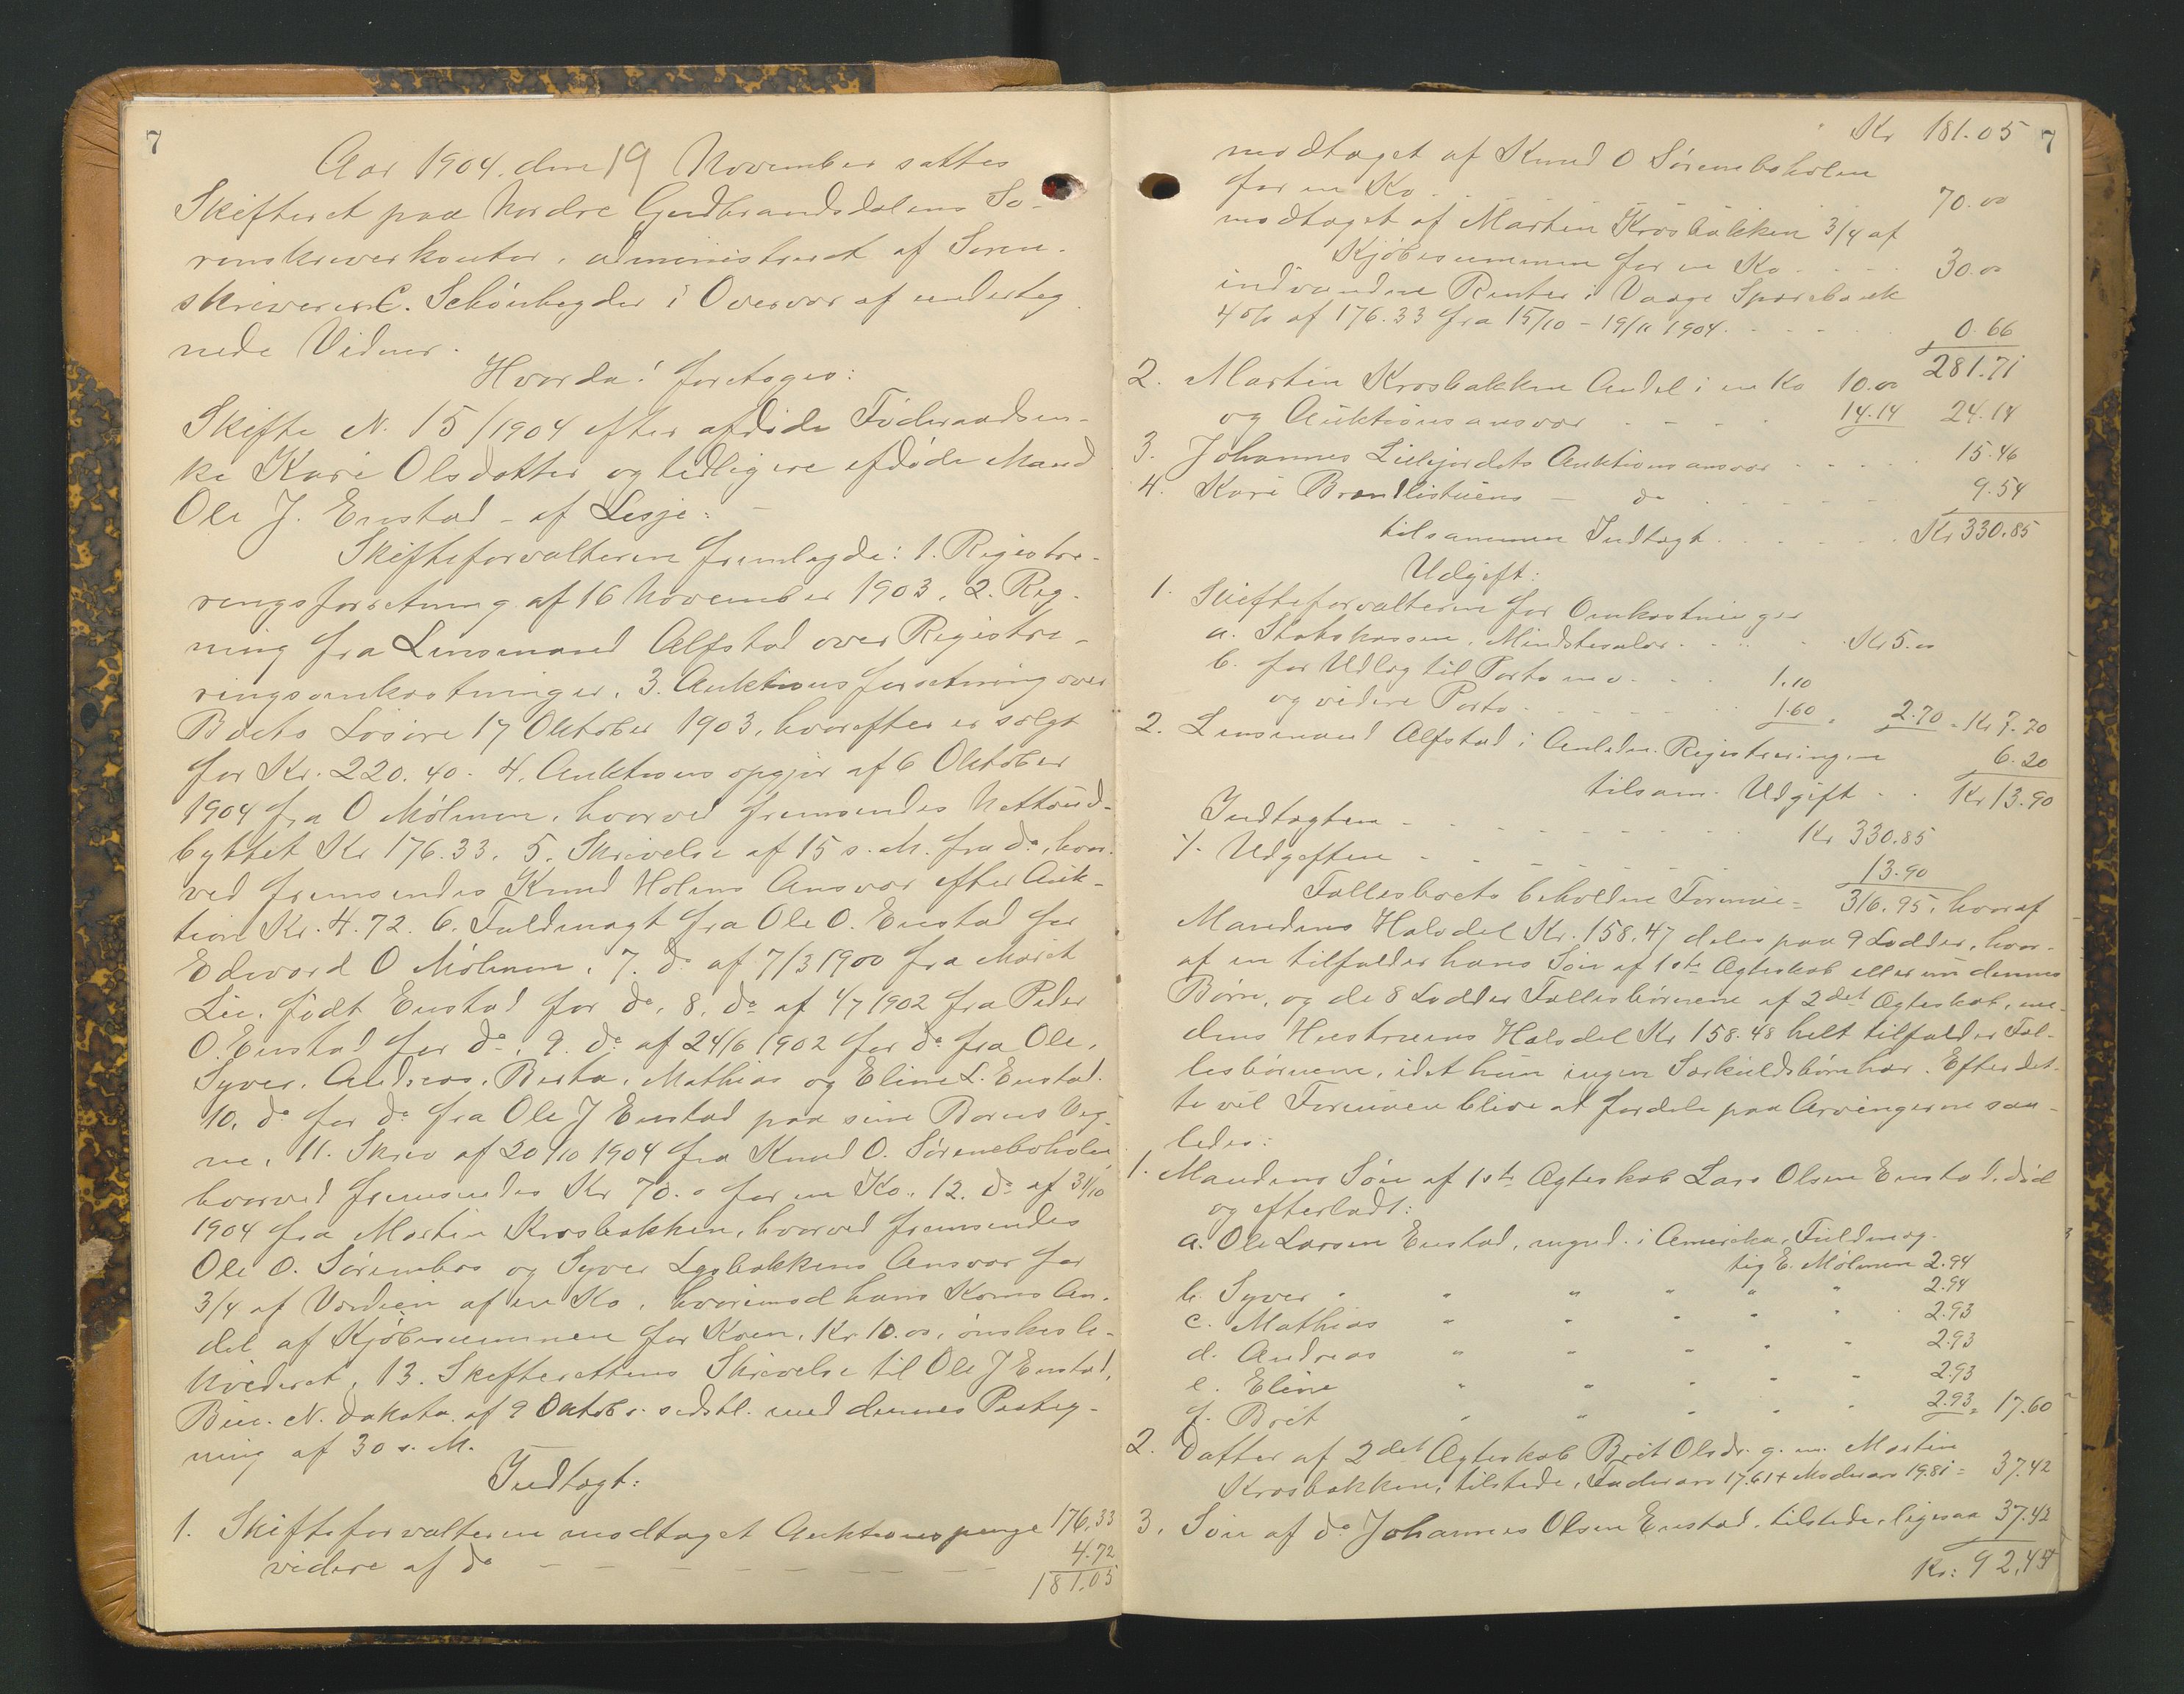 7
Aar 1904. den 19 November sattes
Skifteret paa Nordre Gudbrandsdalens So-
renskriverkontor, administreret af Soren-
skriveren C. Schönheyder i Overvær af underteg-
nede Vidner.
Hvorda! foretoges:
Skifte N. 15/1904 efter afdöde Föderaadsen-
ke Kari Olsdatter og tidligere afdöde Mand
Ole J. Enstad - af Lesje: -
Skifteforvalteren fremlagde: 1. Registre-
ringsforretning af 16 November 1903. 2. Reg-
ning fra Lensmand Alfstad over Registre-
ringsomkostninger. 3. Auktionsforretning over
Boets Lösöre 17 Oktober 1903, hvorefter er solgt
for Kr. 220.40. 4. Auktionsopgjör af 6 Oktober
1904 fra O Mölmen, hvorved fremsendes Nettoud-
byttet Kr 176.33. 5. Skrivelse af 15 s. M. fra do, hvor-
ved fremsendes Knud Holens Ansvar efter Auk-
tion Kr. 4.72. 6. Fuldmagt fra Ole O. Enstad for
Edvard O Mölmen, 7. do af 7/3 1900 fra Marit
Lie, födt Enstad for do, 8. do af 4/7 1902 fra Peder
O. Enstad for do, 9. do af 24/6 1902 for do fra Ole,
Syver, Andreas, Berta, Mathias og Eline L. Enstad.
10. do for do fra Ole J Enstad paa sine Börns Veg-
ne, 11. Skriv af 20/10 1904 fra Knud O. Söreneboholen,
hvorved fremsendes Kr 70.0 for en Ko, 12. do af 31/10
1904 fra Martin Krosbakken, hvorved fremsendes
Ole O. Sörenbos og Syver Lysbakkens Ansvar for
3/4 af Værdien af en Ko, hvorimod hans Kones An-
del af Kjöbesummen for Koen, Kr 10.00, önskes li-
kvideret, 13. Skifterettens Skrivelse til Ole J Enstad,
N. Dakota af 9 Oktobr. sidstl. med dennes Paateg-
ning af 30 s. M.
Indtægt:
1. Skifteforvalteren modtaget Auktionspenge 176.33
videre af do — — — — — — — 4.72
181.05
Kr 181.05 7
modtaget af Knud O Söreneboholen
for en Ko . . 70.00
modtaget af Martin Krosbakken 3/4 af
Kjöbesummen for en Ko . . . . 30.00
indvundne Renter i Vaage Sparebank
4 o/o af 176.33 fra 15/10 - 19/11 1904 . . . . . 0.66
281.71
2. Martin Krosbakken Andel i en Ko 10.00
og Auktionsansvar . . . . 14.14 24.14
3. Johannes Lillejordets Auktionsansvar . . . . . 15.46
4. Kari Brandlistuens — do . . . . . 9.54
tilsammen Indtægt . . . . . . Kr 330.85
Udgift:
1. Skifteforvalteren for Omkostninger
a. Statskassen, Mindstesalær . . . . . Kr 5.00
b. for Udlæg til Porto m v. . . . 1.10
og videre Porto . . . . . . 1.60 = 2.70 = Kr 7.70
2. Lensmand Alfstad i Anledn. Registreringen 6.20
tilsam. Udgift . . Kr 13.90
Indtægten . . . . . . . . Kr 330.85
÷ Udgiften . . . . . . . 13.90
Fællesboets beholdne Formue = 316.95, hvoraf
Mandens Halvdel Kr. 158.47 deles paa 9 Lodder, hvor-
af en tilfalder hans Sön af 1ste Ægteskab eller nu dennes
Börn, og de 8 Lodder Fællesbörnene af 2det Ægteskab, me-
dens Hustruens Halvdel Kr 158.48 helt tilfalder Fæl-
lesbörnene, idet hun ingen Særkuldsbörn har. Efter det-
te vil Formuen blive at fordele paa Arvingerne saa-
ledes:
1. Mandens Sön af 1ste Ægteskab Lars Olsen Enstad, död
og efterladt:
a. Ole Larsen Enstad, mynd. i Amerika, Fuldmæg-
tig E. Mölmen 2.94
b. Syver " " " " " " 2.94
c. Mathias " " " " " 2.93
d. Andreas " " " " " 2.93
e. Eline " " " " " 2.93
f. Brit " " " " " 2.93 = 17.60
2. Datter af 2det Ægteskab Brit Olsdr. g. m. Martin
Krosbakken, tilstede, Fadersarv 17.61 + Modersarv 19.81 = 37.42
3. Sön af do Johannes Olsen Enstad, tilstede, ligesaa 37.42
Kr: 92.44